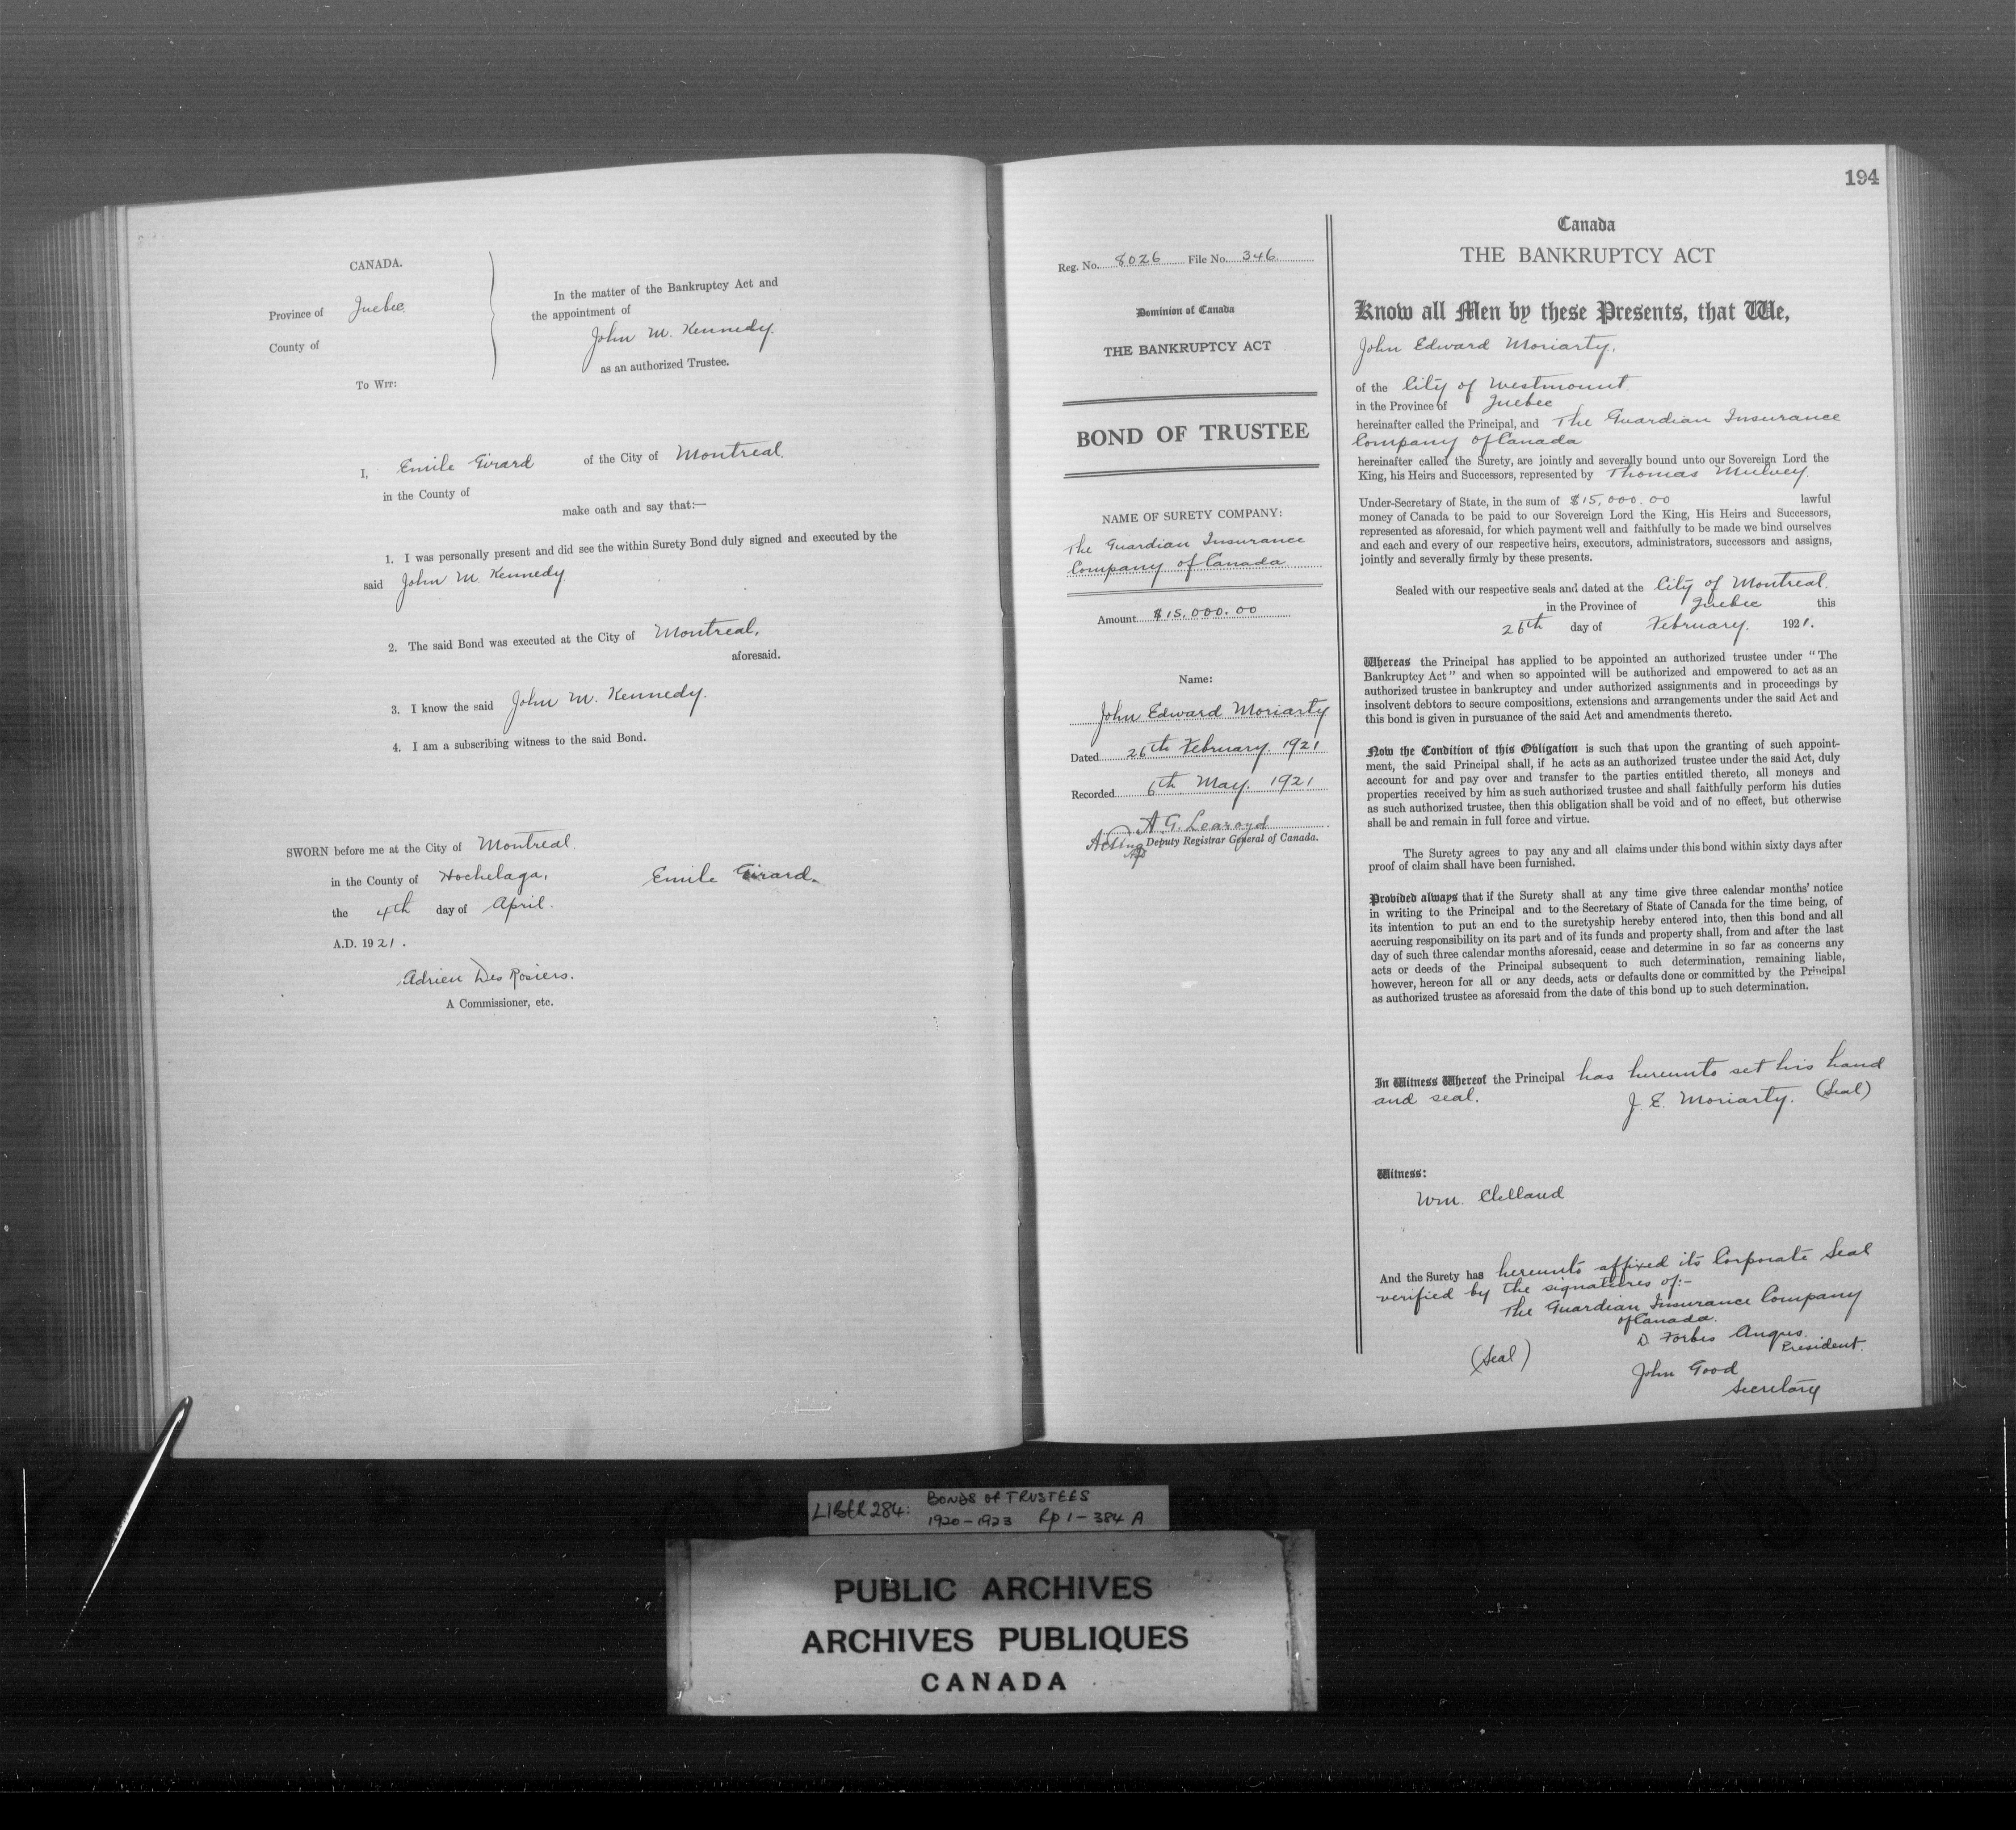 CANADA.
Province of Quebec.
County of
To Wit:
In the matter of the Bankruptcy Act and
the appointment of
John M. Kennedy.
as an authorized Trustee.
I, Emile Girard of the City of Montreal.
in the County of
make oath and say that:—
1. I was personally present and did see the within Surety Bond duly signed and executed by the
said John M. Kennedy
2. The said Bond was executed at the City of Montreal,
aforesaid.
3. I know the said John M. Kennedy.
4. I am a subscribing witness to the said Bond.
SWORN before me at the City of Montreal.
in the County of Hochelaga,
Emile Girard.
the 4th day of April.
A.D. 1921.
Adrien Des Rosiers.
A Commissioner, etc.
Reg. No. 8026 File No. 346
Dominion of Canada
THE BANKRUPTCY ACT
BOND OF TRUSTEE
NAME OF SURETY COMPANY:
The Guardian Insurance
Company of Canada
Amount $15,000.00
Name:
John Edward Moriarty
Dated 26th February. 1921
Recorded 6th May. 1921
A. G. Learoyd
Acting Deputy Registrar General of Canada.
194
Canada
THE BANKRUPTCY ACT
Know all Men by these Presents, that We,
John Edward Moriarty,
of the City of Westmount.
in the Province of Quebec
hereinafter called the Principal, and The Guardian Insurance
Company of Canada
hereinafter called the Surety, are jointly and severally bound unto our Sovereign Lord the
King, his Heirs and Successors, represented by Thomas Mulvey.
Under-Secretary of State, in the sum of $15,000.00 lawful
money of Canada to be paid to our Sovereign Lord the King, His Heirs and Successors,
represented as aforesaid, for which payment well and faithfully to be made we bind ourselves
and each and every of our respective heirs, executors, administrators, successors and assigns,
jointly and severally firmly by these presents.
Sealed with our respective seals and dated at the City of Montreal.
in the Province of Quebec this
26th day of February. 1921.
Whereas the Principal has applied to be appointed an authorized trustee under "The
Bankruptcy Act" and when so appointed will be authorized and empowered to act as an
authorized trustee in bankruptcy and under authorized assignments and in proceedings by
insolvent debtors to secure compositions, extensions and arrangements under the said Act and
this bond is given in pursuance of the said Act and amendments thereto.
Now the Condition of this Obligation is such that upon the granting of such appoint-
ment, the said Principal shall, if he acts as an authorized trustee under the said Act, duly
account for and pay over and transfer to the parties entitled thereto, all moneys and
properties received by him as such authorized trustee and shall faithfully perform his duties
as such authorized trustee, then this obligation shall be void and of no effect, but otherwise
shall be and remain in full force and virtue.
The Surety agrees to pay any and all claims under this bond within sixty days after
proof of claim shall have been furnished.
Provided always that if the Surety shall at any time give three calendar months' notice
in writing to the Principal and to the Secretary of State of Canada for the time being, of
its intention to put an end to the suretyship hereby entered into, then this bond and all
accruing responsibility on its part and of its funds and property shall, from and after the last
day of such three calendar months aforesaid, cease and determine in so far as concerns any
acts or deeds of the Principal subsequent to such determination, remaining liable,
however, hereon for all or any deeds, acts or defaults done or committed by the Principal
as authorized trustee as aforesaid from the date of this bond up to such determination.
In Witness Whereof the Principal has hereunto set his hand
and seal.
J. E. Moriarty. (Seal)
Witness:
Wm. Clelland
And the Surety has hereunto affixed its Corporate Seal
verified by the signatures of:-
The Guardian Insurance Company
of Canada.
D. Forbes Angus.
President.
(Seal)
John Good
Secretary
LIBER 284: BONDS OF TRUSTEES
1920-1923 Rp 1-384 A
PUBLIC ARCHIVES
ARCHIVES PUBLIQUES
CANADA